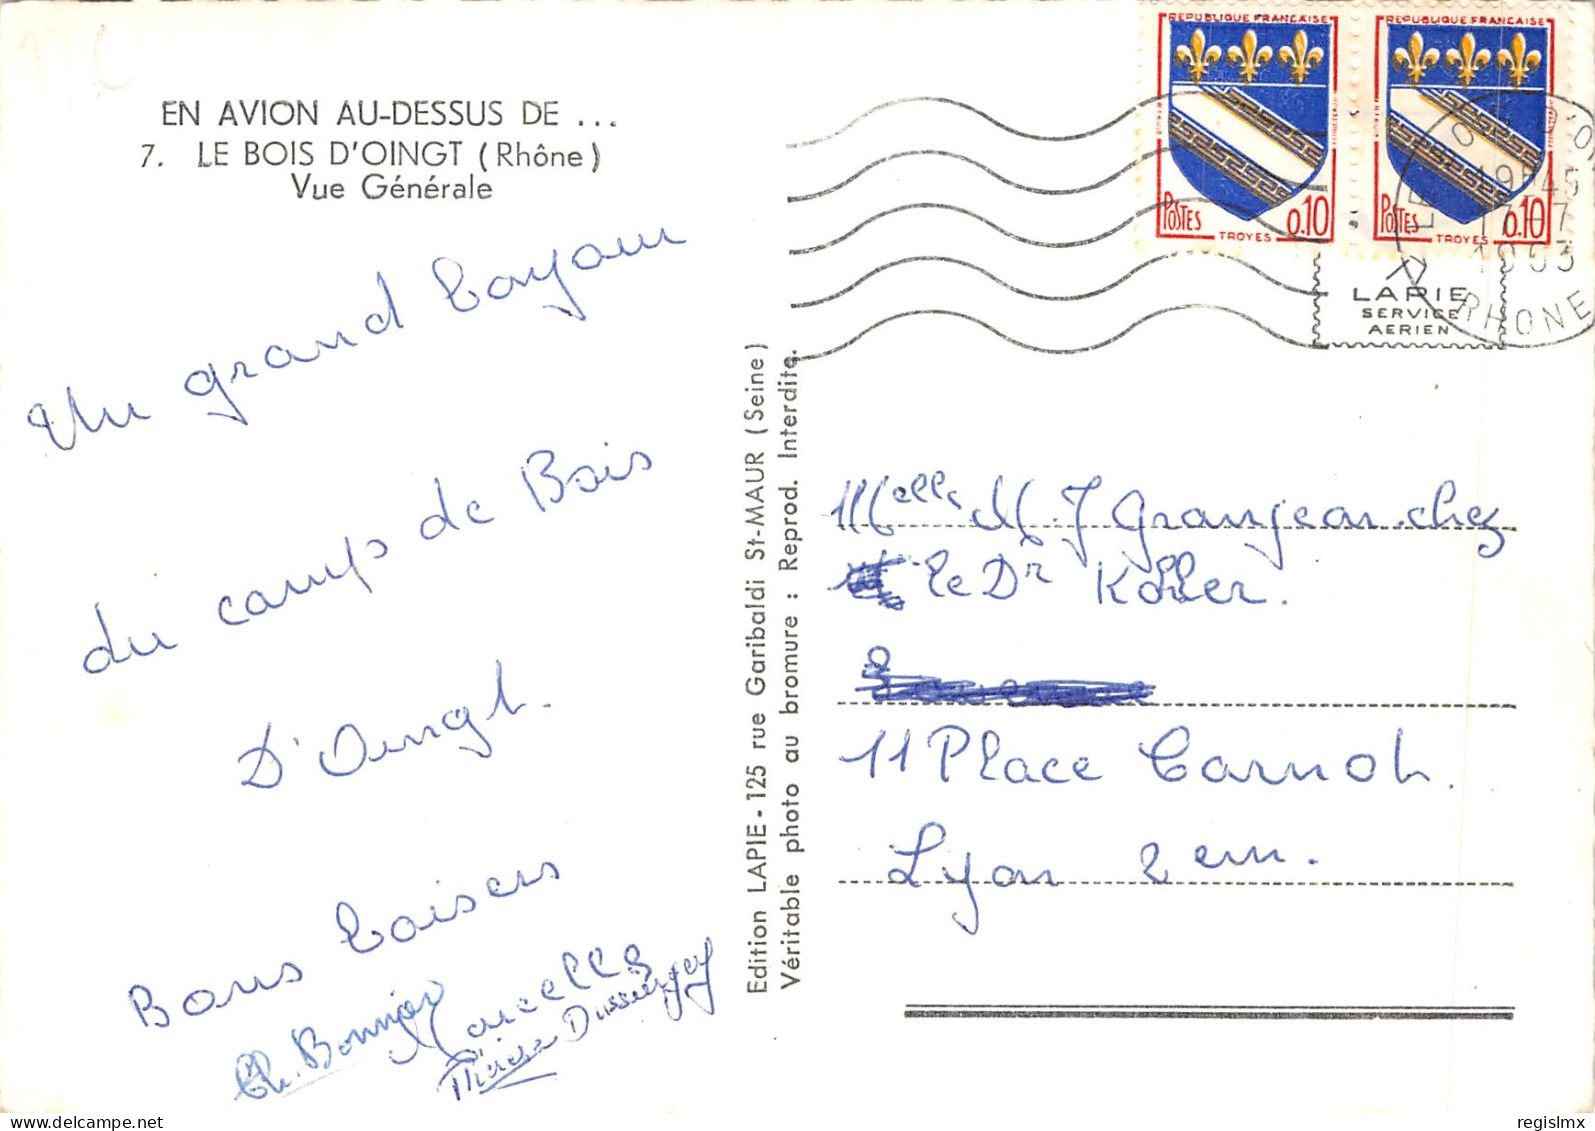 EN AVION AU-DESSUS DE ...
7. LE BOIS D'OINGT (Rhône)
Vue Générale
Un grand bonjour
du camps de Bois
D'Oingt.
Bons baisers
Marcelle
Ch. Bonnier
Thérèse
Edition LAPIE - 125 rue Garibaldi St-MAUR (Seine)
Véritable photo au bromure : Reprod. Interdite.
REPUBLIQUE FRANÇAISE
POSTES 0,10
TROYES
REPUBLIQUE FRANÇAISE
POSTES 0,10
TROYES
19H45
17-7
1963
RHONE
LAPIE
SERVICE
AERIEN
Melle M.J Granjean chez
le Dr Koller.
11 Place Carnot.
Lyon 2 em.
regislmx